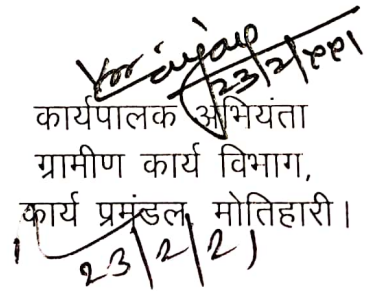 23/2/2021
कार्यपालक अभियंता
ग्रामीण कार्य विभाग,
कार्य प्रमंडल, मोतिहारी।
23/2/21